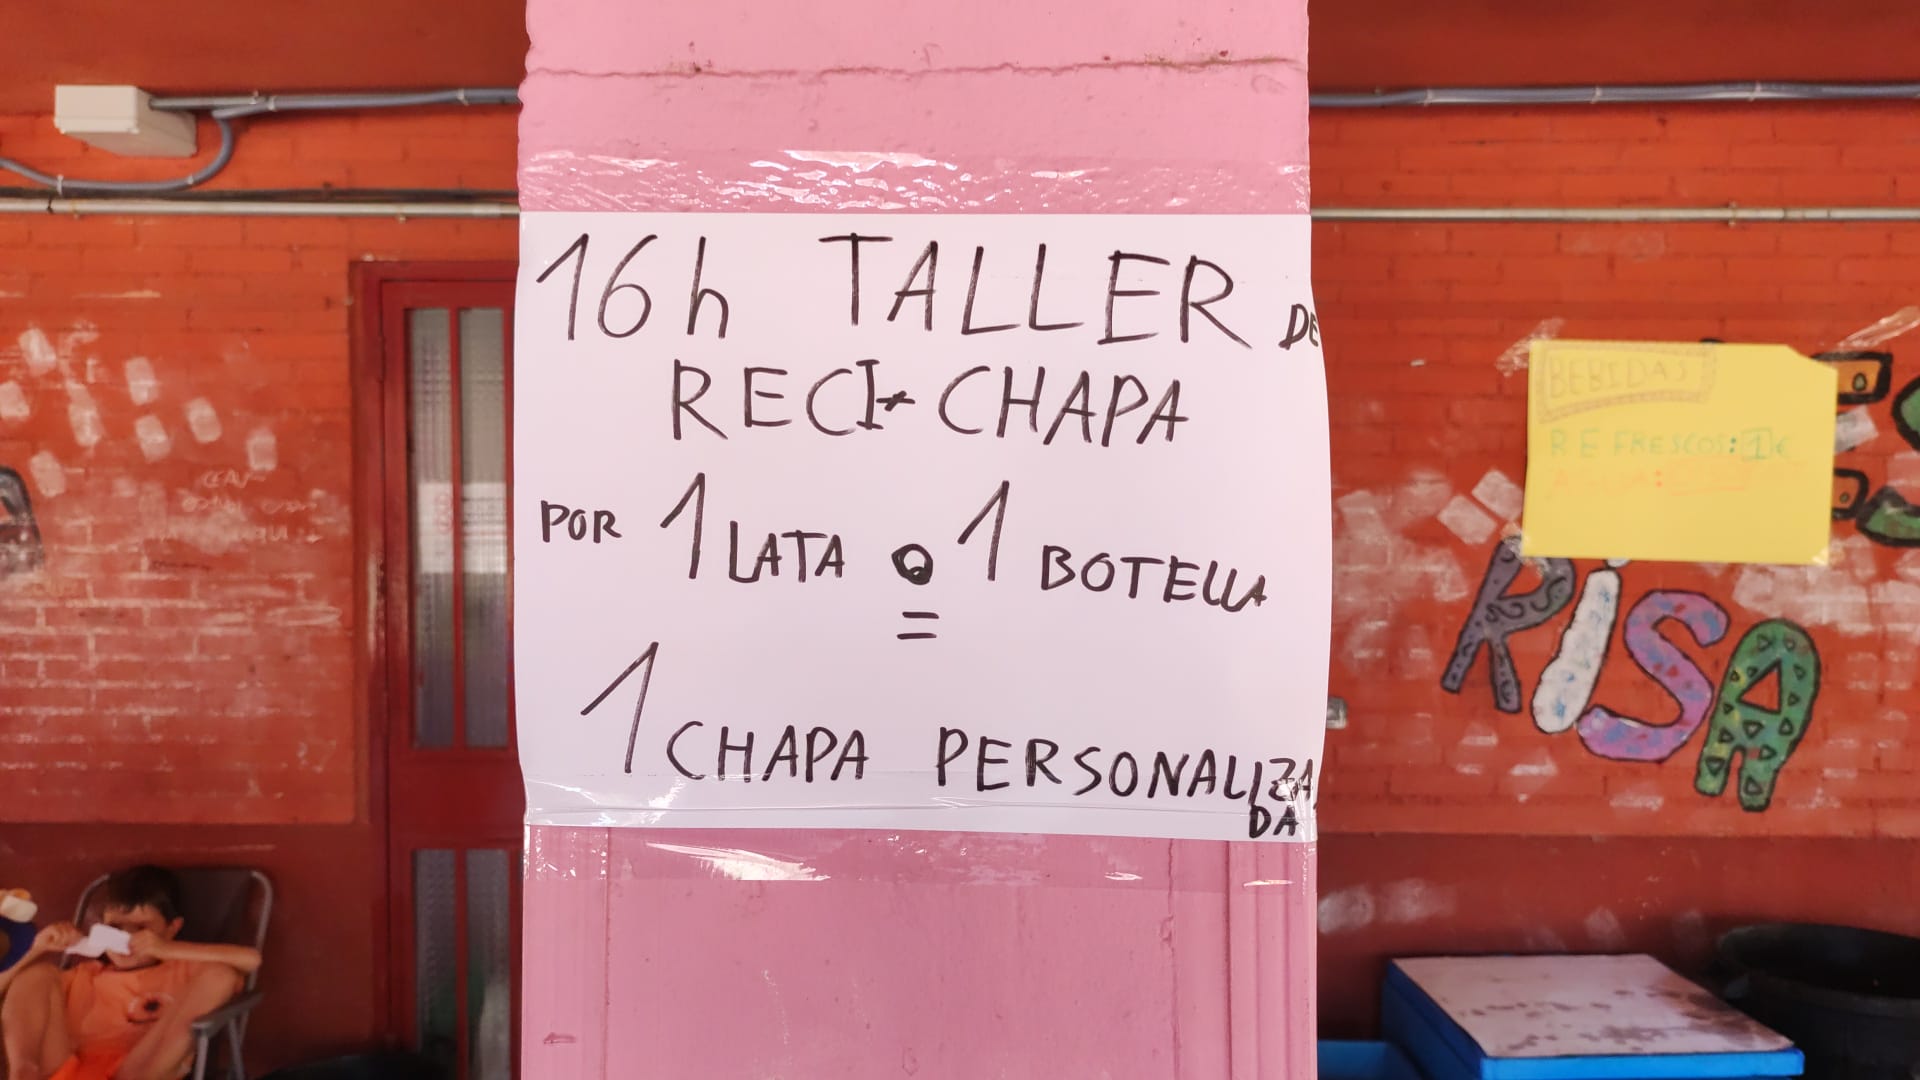 16h TALLER DE
RECI-CHAPA
POR 1 LATA O 1 BOTELLA
=
1 CHAPA PERSONALIZA
DA
BEBIDAS
REFRESCOS: 1€
AGUA:
RISA